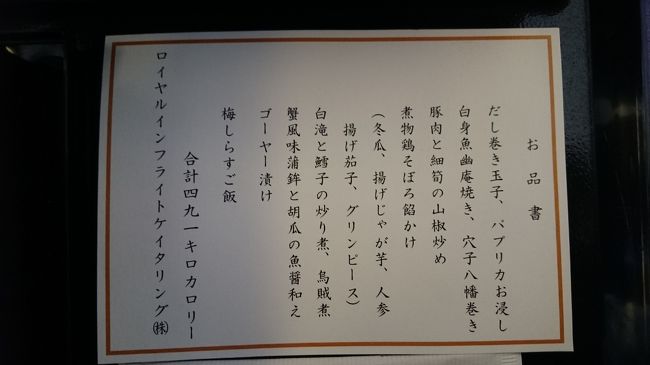 お品書
だし巻き玉子、パプリカお浸し
白身魚幽庵焼き、穴子八幡巻き
豚肉と細筍の山椒炒め
煮物鶏そぼろ餡かけ
(冬瓜、揚げじゃが芋、人参
揚げ茄子、グリンピース)
白滝と鱈子の炒り煮、烏賊煮
蟹風味蒲鉾と胡瓜の魚醤和え
ゴーヤー漬け
梅しらすご飯
合計四九一キロカロリー
ロイヤルインフライトケイタリング㈱